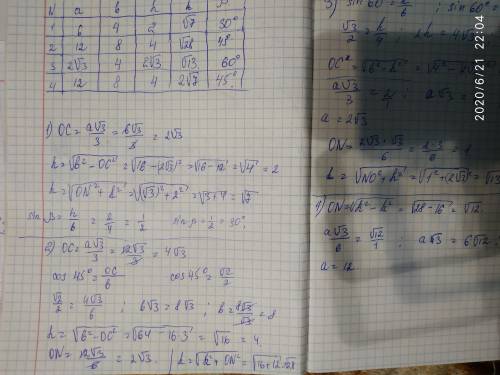 N a b h k β
1 6 4 2 √7 30°
2 12 8 4 √28 45°
3 2√3 4 2√3 √13 60°
4 12 8 4 2√7 45°
1) OC = a√3/3 = 6√3/3 = 2√3
h = √(b² - OC²) = √(16 - (2√3)²) = √(16-12) = √4 = 2
k = √(ON² + h²) = √((√3)² + 2²) = √(3+4) = √7
sin β = h/b = 2/4 = 1/2 sin β = 1/2 = 30°,
2) OC = a√3/3 = 12√3/3 = 4√3
cos 45° = OC/b cos 45° = √2/2
√2/2 = 4√3/b ; b√3 = 8√3 ; b = 8√3/√3 = 8
h = √(b² - OC²) = √(64 - 16·3) = √16 = 4.
ON = 12√3/6 = 2√3. k = √(h² + ON²) = √(16+12) = √28
3) sin 60° = h/b ; sin 60° =
√3/2 = h/4 2h = 4√
OC² = √(b² - h²) = √(4² -
a√3/3 = ; a√3 =
a = 2√3
ON = 2√3·√3/6 = 2·3/6 = 1
k = √(NO² + h²) = √(1² + (2√3)²) = √13
4) ON = √(k² - h²) = √(28 - 16) = √12.
a√3/6 = √12/1 ; a√3 = 6√12 ;
a = 12
2020/6/21 22:04